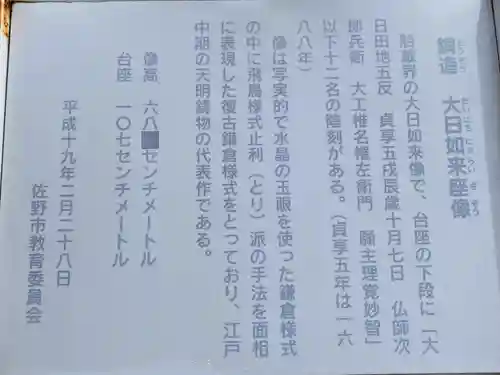 鋳造　大日如来座像
ちゅうぞう　だいにちにょらいざぞう
胎蔵界の大日如来像で、台座の下段に「大
日田地五反　貞享五戊辰歳十月七日　仏師次
郎兵衛　大工椎名権左衛門　願主理覚妙智」
以下十二名の陰刻がある。（貞享五年は一六
八八年）
像は写実的で水晶の玉眼を使った鎌倉様式
の中に飛鳥様式止利（とり）派の手法を面相
に表現した復古鎌倉様式をとっており、江戸
中期の天明鋳物の代表作である。
像高　六八　センチメートル
台座　一〇七センチメートル
平成十九年二月二十八日
佐野市教育委員会